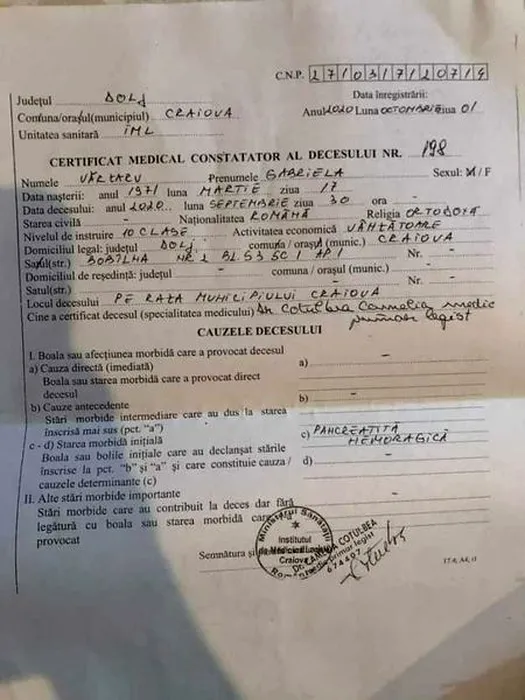 C.N.P. 2710317120714
Județul DOLJ Data înregistrării:
Comuna/orașul(municipiul) CRAIOVA Anul 2020 Luna OCTOMBRIE ziua 01
Unitatea sanitară IML
CERTIFICAT MEDICAL CONSTATATOR AL DECESULUI NR. 198
Numele Prenumele GABRIELA Sexul: M / F
Data nașterii: anul 1971 luna MARTIE ziua 17
Data decesului: anul 2020 luna SEPTEMBRIE ziua 30 ora -
Starea civilă - Naționalitatea ROMÂNĂ Religia ORTODOXĂ
Nivelul de instruire 10 CLASE Activitatea economică VÂNZĂTOARE
Domiciliul legal: județul DOLJ comuna / orașul (munic.) CRAIOVA
Satul(str.) NR 2 BL 53 SC 1 AP 1 Nr. -
Domiciliul de reședință: județul - comuna / orașul (munic.) -
Satul(str.) - Nr. -
Locul decesului PE RAZA MUNICIPIULUI CRAIOVA
Cine a certificat decesul (specialitatea medicului) Dr Cotulbea Camelia medic
primar legist
CAUZELE DECESULUI
I. Boala sau afecțiunea morbidă care a provocat decesul
a) Cauza directă (imediată) a) -
Boala sau starea morbidă care a provocat direct
decesul
b) Cauze antecedente b) -
Stări morbide intermediare care au dus la starea
înscrisă mai sus (pct. "a")
c - d) Starea morbidă inițială c) PANCREATITĂ
HEMORAGICĂ
Boala sau bolile inițiale care au declanșat stările
înscrise la pct. "b" și "a" și care constituie cauza / d) -
cauzele determinante (c)
II. Alte stări morbide importante -
Stări morbide care au contribuit la deces dar fără
legătură cu boala sau starea morbidă care
provocat -
Ministerul Sănătății
Institutul
de Medicină Legală
Craiova
România
Semnătura și
Dr. CAMELIA COTULBEA
medic primar legist
674407